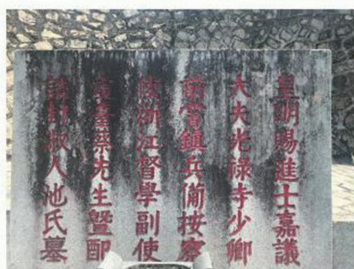 皇明賜進士嘉議
大夫光祿寺少卿
前嘗鎮兵備按察
陝浙江督學副使
臺蔡先生暨配
誥封淑人池氏墓